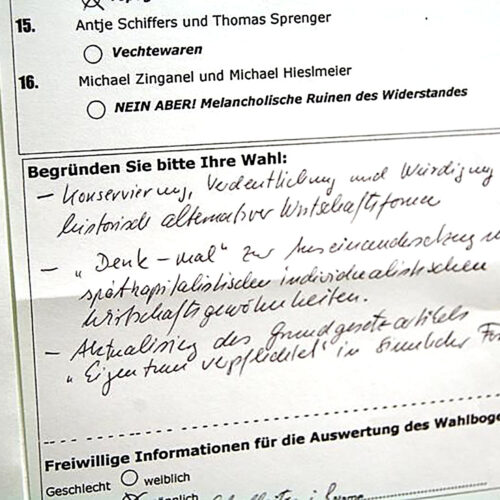 15. Antje Schiffers und Thomas Sprenger
Vechtewaren
16. Michael Zinganel und Michael Hieslmeier
NEIN ABER! Melancholische Ruinen des Widerstandes
Begründen Sie bitte Ihre Wahl:
– Konservierung, Verdeutlichung und Würdigung
historisch alternativer Wirtschaftsformen
– "Denk-mal" zur Auseinandersetzung
spätkapitalistischen individualistischen
Wirtschaftsgewohnheiten.
– Aktualisierung des Grundgesetzartikels
"Eigentum verpflichtet" in sinnlicher
Freiwillige Informationen für die Auswertung des Wahlboge
Geschlecht weiblich